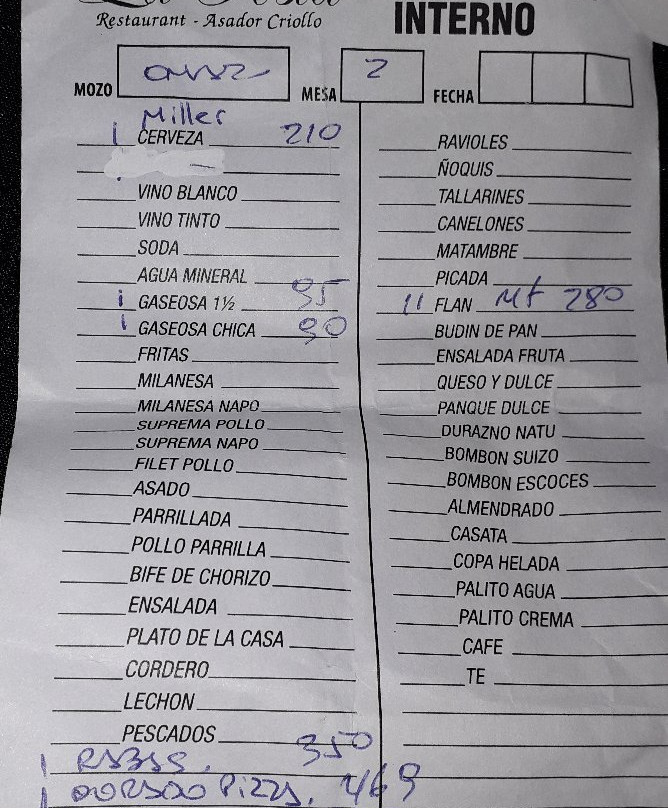 Restaurant - Asador Criollo
INTERNO
MOZO
MESA 2
FECHA
Miller
1 CERVEZA 210
VINO BLANCO
VINO TINTO
SODA
AGUA MINERAL
1 GASEOSA 1½ 95
1 GASEOSA CHICA 90
FRITAS
MILANESA
MILANESA NAPO
SUPREMA POLLO
SUPREMA NAPO
FILET POLLO
ASADO
PARRILLADA
POLLO PARRILLA
BIFE DE CHORIZO
ENSALADA
PLATO DE LA CASA
CORDERO
LECHON
PESCADOS
1 RABAS. 350
1 DORADO PIZZA. 469
RAVIOLES
ÑOQUIS
TALLARINES
CANELONES
MATAMBRE
PICADA
11 FLAN Mt 280
BUDIN DE PAN
ENSALADA FRUTA
QUESO Y DULCE
PANQUE DULCE
DURAZNO NATU
BOMBON SUIZO
BOMBON ESCOCES
ALMENDRADO
CASATA
COPA HELADA
PALITO AGUA
PALITO CREMA
CAFE
TE